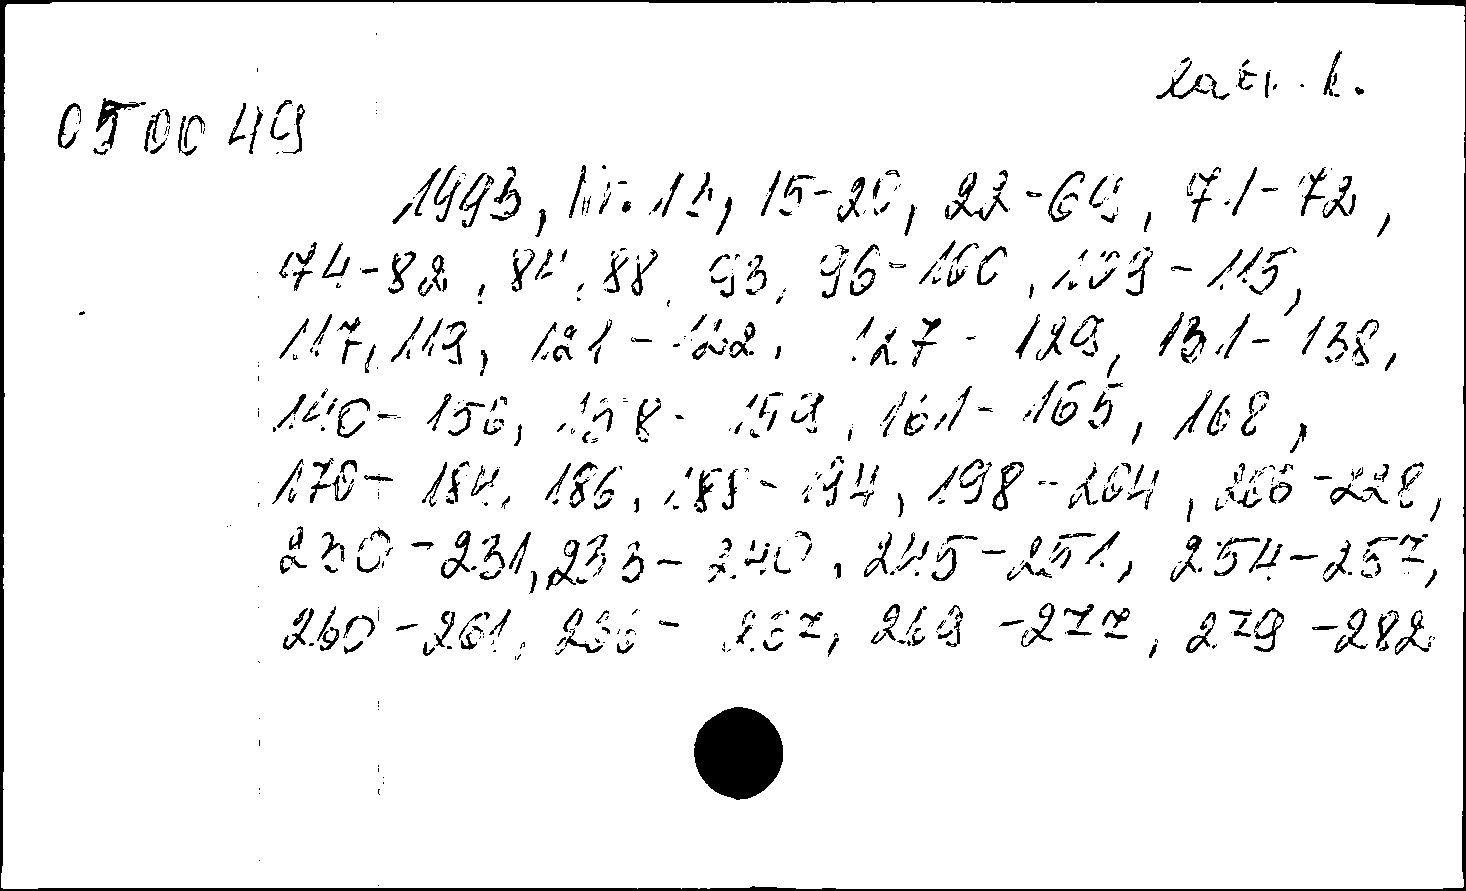 latv. k.
050049
1993, Nr. 11, 15-20, 22-69, 71-72,
74-82, 84, 88, 93, 96-100, 109-115,
117, 119, 121-122, 127-129, 131-138,
140-156, 158-159, 161-165, 168,
170-184, 186, 188-194, 198-204, 206-228,
230-231, 233-240, 245-251, 254-257,
260-261, 266-267, 269-277, 279-282